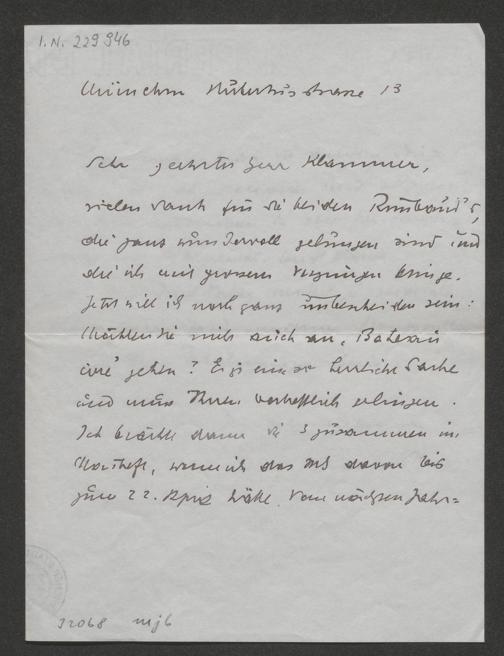 I.N. 229 946
München Hubertusstrasse 13
Sehr geehrter Herr Klammer,
vielen Dank für die beiden Rimbaud's,
die ganz wundervoll gelungen sind und
die ich mit grossem Vergnügen bringe.
Jetzt will ich noch ganz unbescheiden sein:
Möchten Sie nicht auch an „Bateau
ivre" gehen? Es ist eine so herrliche Sache
und muss Ihnen vortrefflich gelingen.
Ich brächte dann die 3 zusammen im
Maiheft, wenn ich das MS davon bis
zum 22. April hätte. Vom nächsten Jahr=
32068 mjb